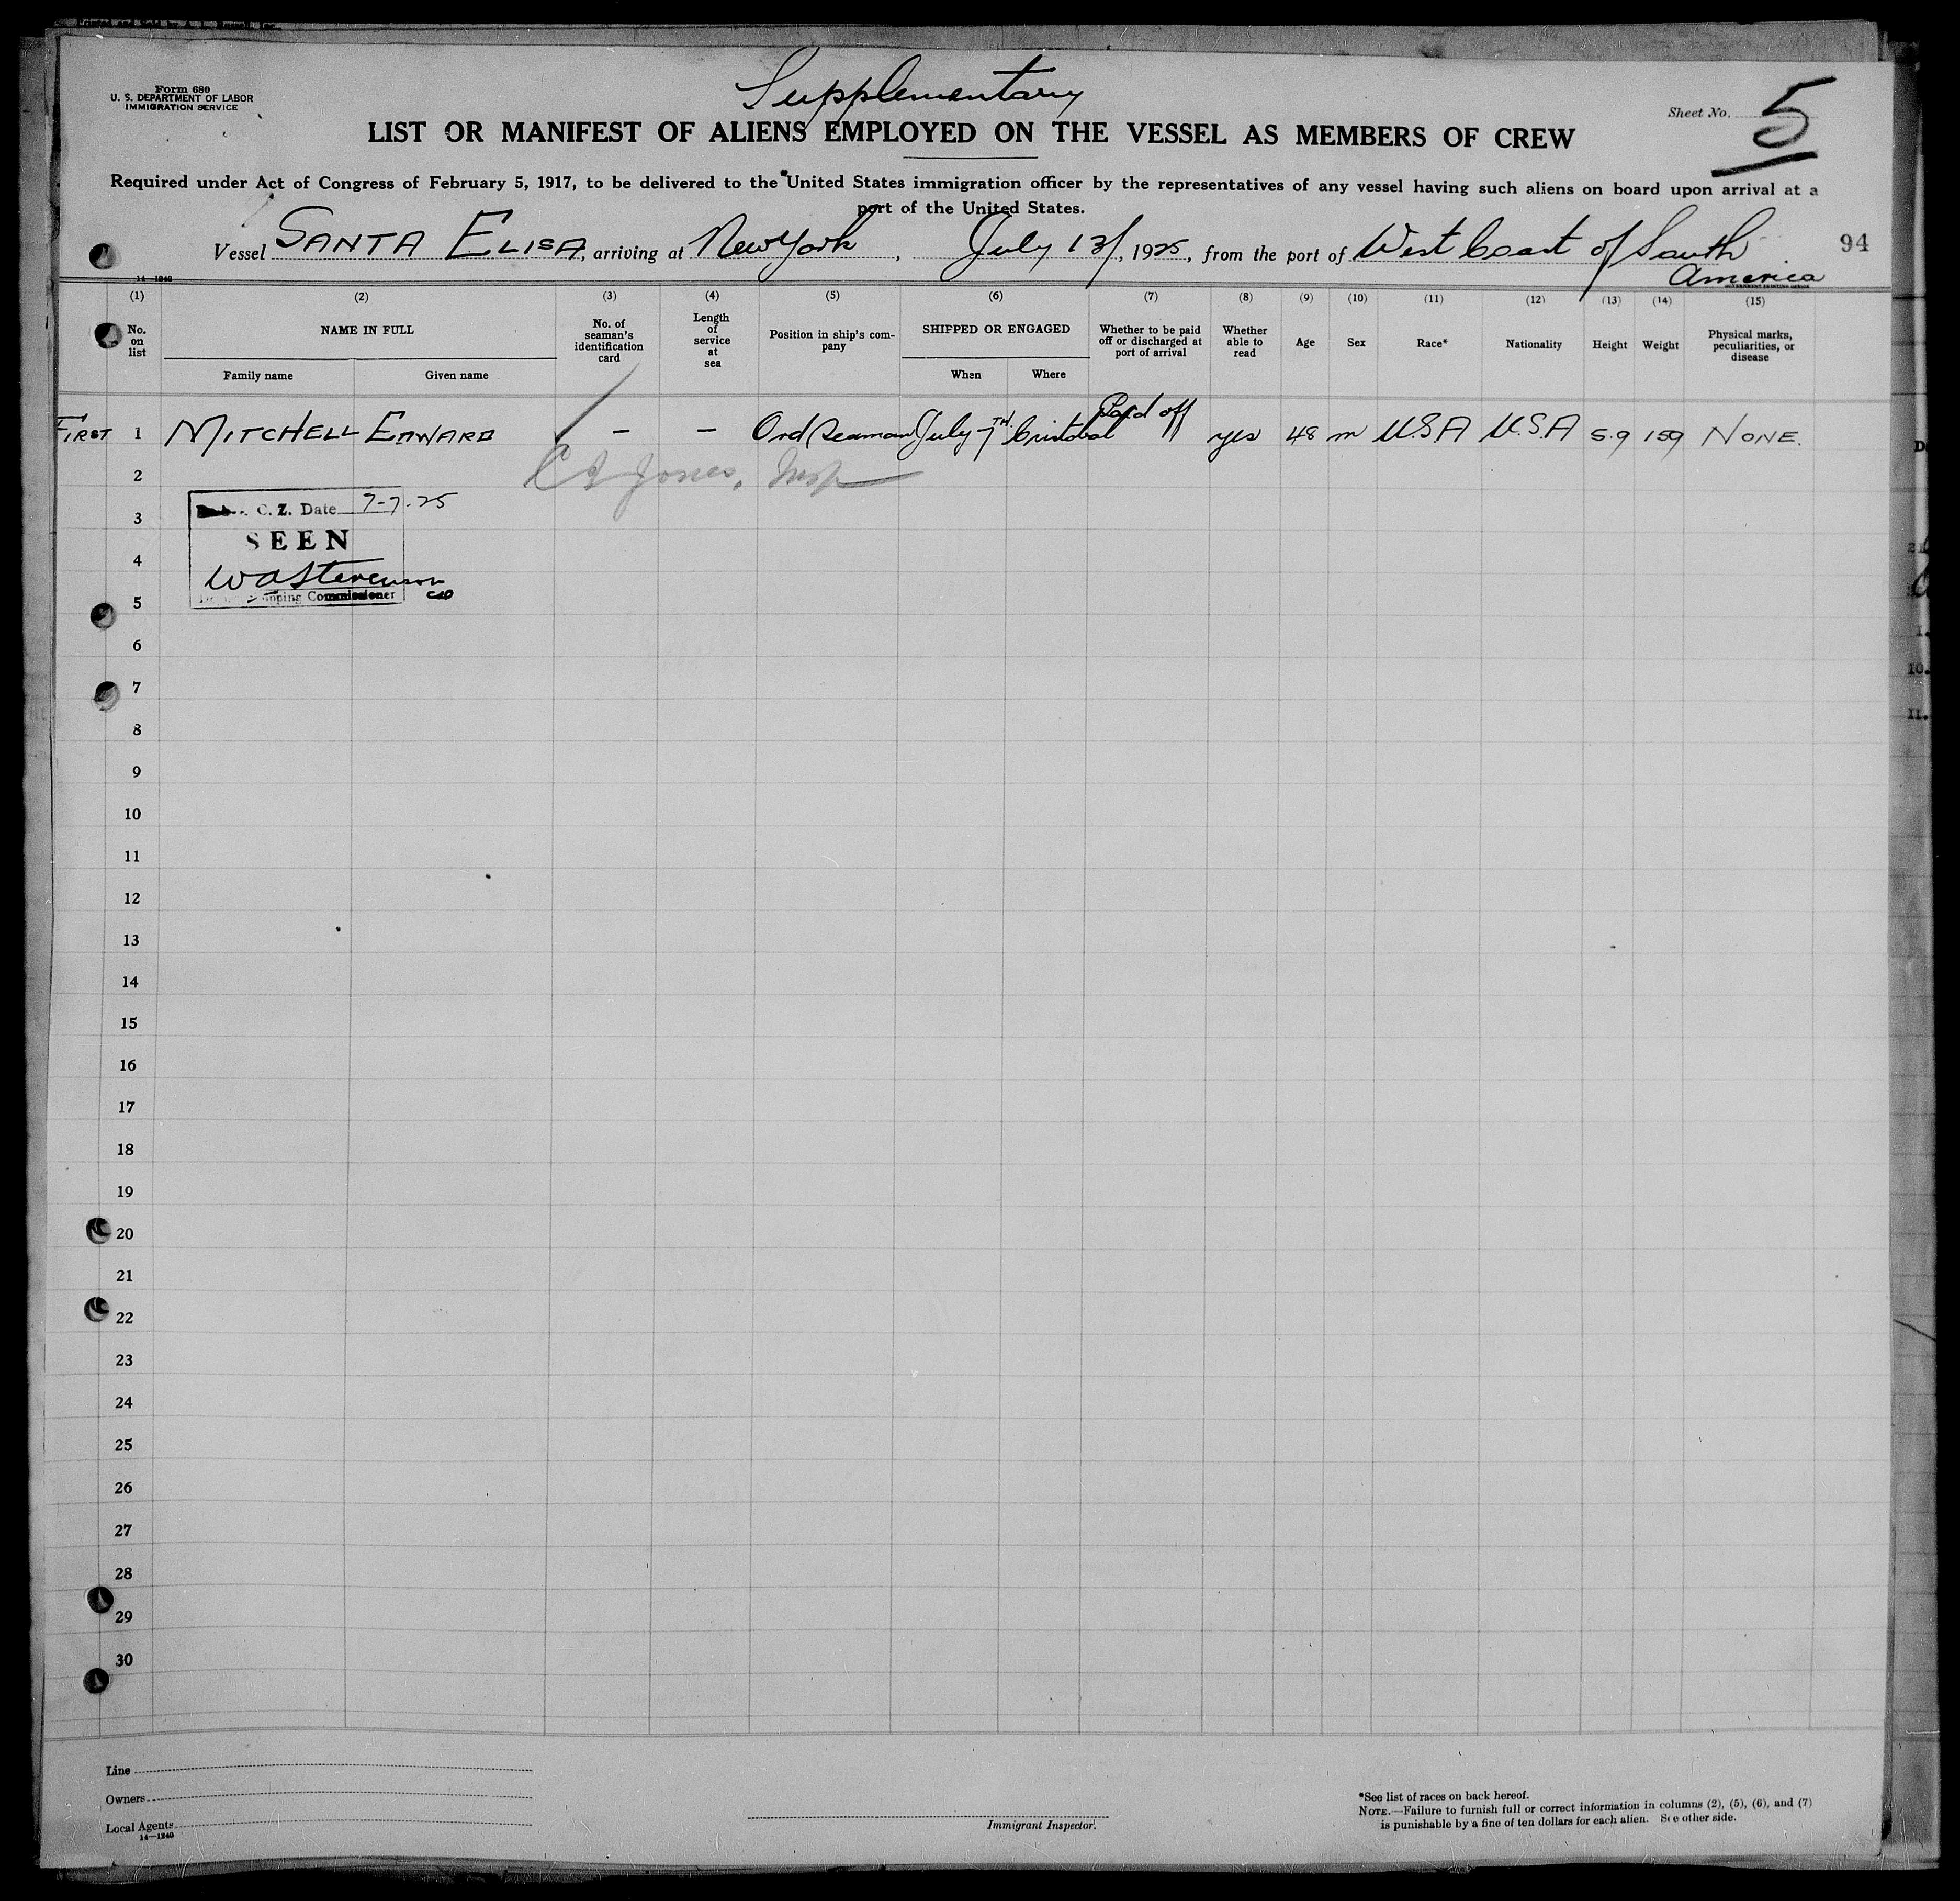 Form 680
U. S. DEPARTMENT OF LABOR
IMMIGRATION SERVICE
Supplementary
Sheet No. 5
LIST OR MANIFEST OF ALIENS EMPLOYED ON THE VESSEL AS MEMBERS OF CREW
Required under Act of Congress of February 5, 1917, to be delivered to the United States immigration officer by the representatives of any vessel having such aliens on board upon arrival at a
port of the United States.
Vessel SANTA ELISA, arriving at New York, July 13/, 1925, from the port of West Coast of South America
94
14-1240
(1) (2) (3) (4) (5) (6) (7) (8) (9) (10) (11) (12) (13) (14) (15)
No. on list
NAME IN FULL
Family name
Given name
No. of seaman's identification card
Length of service at sea
Position in ship's company
SHIPPED OR ENGAGED
When
Where
Whether to be paid off or discharged at port of arrival
Whether able to read
Age
Sex
Race*
Nationality
Height
Weight
Physical marks, peculiarities, or disease
FIRST 1 MITCHELL EDWARD – – Ord Seaman July 7TH Cristobal Paid off yes 48 m U.S.A U.S.A 5.9 159 NONE.
2
Jones, Insp
3
C. Z. Date 7-7-25
SEEN
4
W A Stevenson
5
Shipping Commissioner
6
7
8
9
10
11
12
13
14
15
16
17
18
19
20
21
22
23
24
25
26
27
28
29
30
Line
Owners
Local Agents
14-1240
Immigrant Inspector.
*See list of races on back hereof.
NOTE.—Failure to furnish full or correct information in columns (2), (5), (6), and (7)
is punishable by a fine of ten dollars for each alien. See other side.